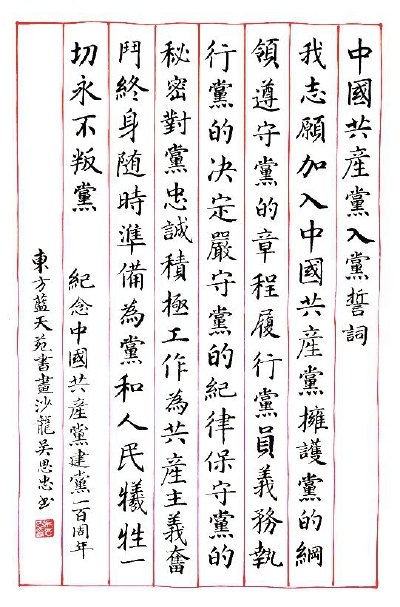 中國共產黨入黨誓詞
我志願加入中國共產黨擁護黨的綱
領遵守黨的章程履行黨員義務執
行黨的决定嚴守黨的紀律保守黨的
秘密對黨忠誠積極工作為共產主義奮
鬥終身随時準備為黨和人民犧牲一
切永不叛黨
紀念中國共產黨建黨一百周年
東方藍天苑書畫沙龍吴思忠书